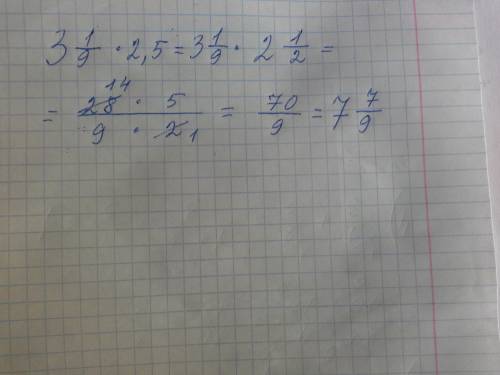 3 1/9 · 2,5 = 3 1/9 · 2 1/2 =
= 28 14 · 5 / 9 · 2 1 = 70/9 = 7 7/9